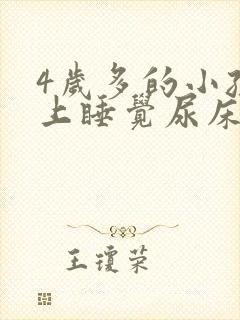 4歲多的小
上睡覺尿床
王瓊荣